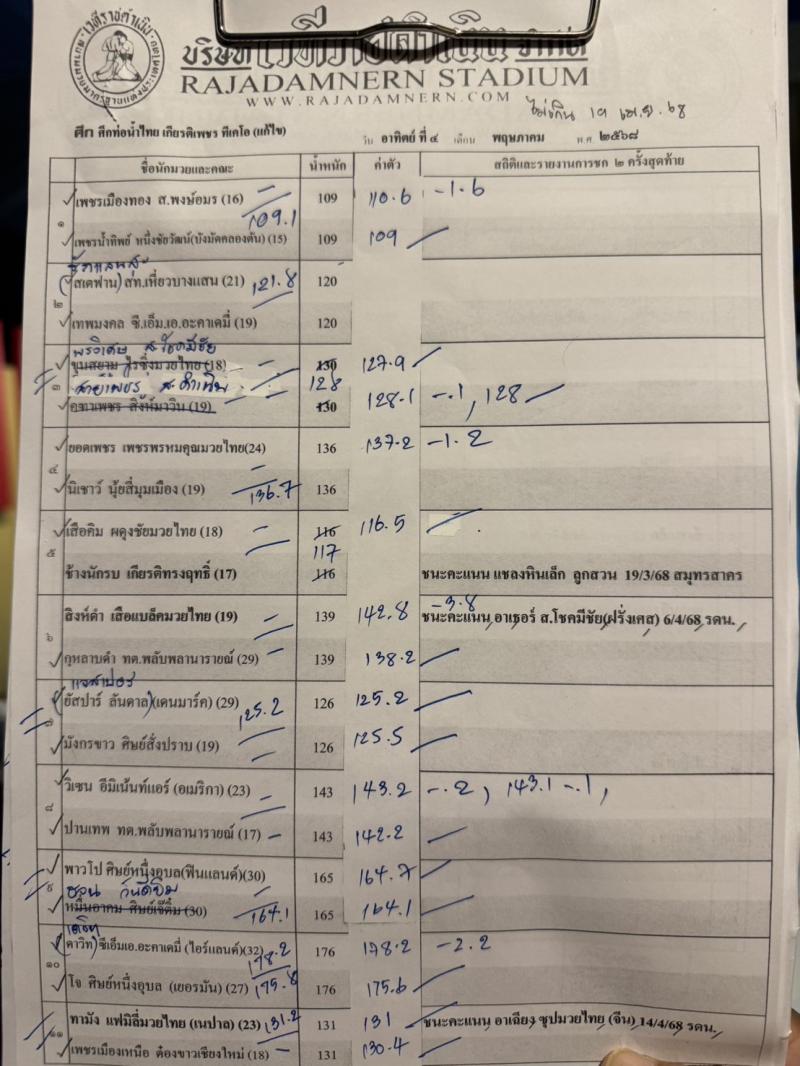 เวทีราชดำเนิน
บริษัท เวทีราชดำเนิน จำกัด
RAJADAMNERN STADIUM
WWW.RAJADAMNERN.COM
ไม่เกิน 19 เม.ย. 68
ศึก ศึกท่อน้ำไทย เกียรติเพชร ทีเคโอ (แก้ไข) วัน อาทิตย์ ที่ ๔ เดือน พฤษภาคม พ.ศ ๒๕๖๘
ชื่อนักมวยและคณะ น้ำหนัก ค่าตัว สถิติและรายงานการชก ๒ ครั้งสุดท้าย
เพชรเมืองทอง ส.พงษ์อมร (16) 109 110.6 -1.6
๑ 109.1
เพชรน้ำทิพย์ หนึ่งชัยวัฒน์(บังมัดคลองตัน) (15) 109 109
(สเตฟาน) สท.เที่ยวบางแสน (21) 121.8 120
๒
เทพมงคล ซี.เอ็ม.เอ.อะคาเดมี่ (19) 120
พรวิเศษ ส.โชคมีชัย
ขุนสยาม ไรซิ่งมวยไทย (18) 130 127.9
๓ สายเพชร 128
สิงห์มาวิน (19) 130 128.1 -.1, 128
ยอดเพชร เพชรพรหมคุณมวยไทย(24) 136 137.2 -1.2
๔
นิเชาว์ นุ้ยสี่มุมเมือง (19) 136.7 136
เสือคิม ผดุงชัยมวยไทย (18) 116 116.5
๕ 117
ช้างนักรบ เกียรติทรงฤทธิ์ (17) 116 ชนะคะแนน แชลงหินเล็ก ลูกสวน 19/3/68 สมุทรสาคร
-3.8
สิงห์ดำ เสือแบล็คมวยไทย (19) 139 142.8 ชนะคะแนน อาเธอร์ ส.โชคมีชัย(ฝรั่งเศส) 6/4/68 รดน.
๖
กุหลาบดำ ทต.พลับพลานารายณ์ (29) 139 138.2
แจสเปอร์
(ยัสปาร์ ลันดาล)(เดนมาร์ค) (29) 125.2 126 125.2
๗
มังกรขาว ศิษย์สั่งปราบ (19) 126 125.5
วิเซน อีมิเน้นท์แอร์ (อเมริกา) (23) 143 143.2 -.2, 143.1 -.1,
๘
ปานเทพ ทต.พลับพลานารายณ์ (17) 143 142.2
พาวโป ศิษย์หนึ่งอุบล(ฟินแลนด์)(30) 165 164.7
๙
หมื่นอาคม ศิษย์เจ๊ติ๋ม (30) 164.1 165 164.1
เดวิท
(ดาวิท) ซีเอ็มเอ.อะคาเดมี่ (ไอร์แลนด์)(32) 178.2 176 178.2 -2.2
๑๐
โจ ศิษย์หนึ่งอุบล (เยอรมัน) (27) 175.8 176 175.6
ทามัง แฟมิลี่มวยไทย (เนปาล) (23) 131.2 131 131 ชนะคะแนน อาเฉียง ซุปมวยไทย (จีน) 14/4/68 รดน.
๑๑
เพชรเมืองเหนือ ต๋องขาวเชียงใหม่ (18) 131 130.4